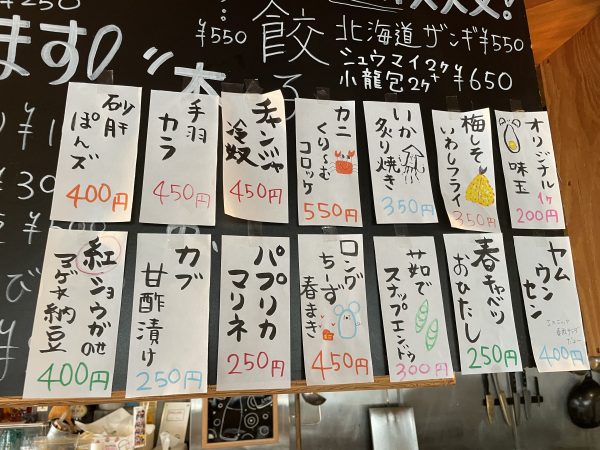 ¥250
ます!
¥550
餃子
北海道ザンギ¥550
シュウマイ2ケ+
小龍包2ケ
¥650
オリジナル
味玉
1ヶ
200円
梅しそ
いわしフライ
350円
いか
炙り焼き
350円
カニ
くり〜む
コロッケ
550円
チャンジャ
冷奴
450円
手羽
カラ
450円
砂肝
ぽんズ
400円
ヤム
ウン
セン
400円
春キャベツ
おひたし
250円
茹で
スナップエンドウ
300円
ロング
ちーず
春まき
450円
パプリカ
マリネ
250円
カブ
甘酢漬け
250円
紅ショウガのせ
マグロ納豆
400円